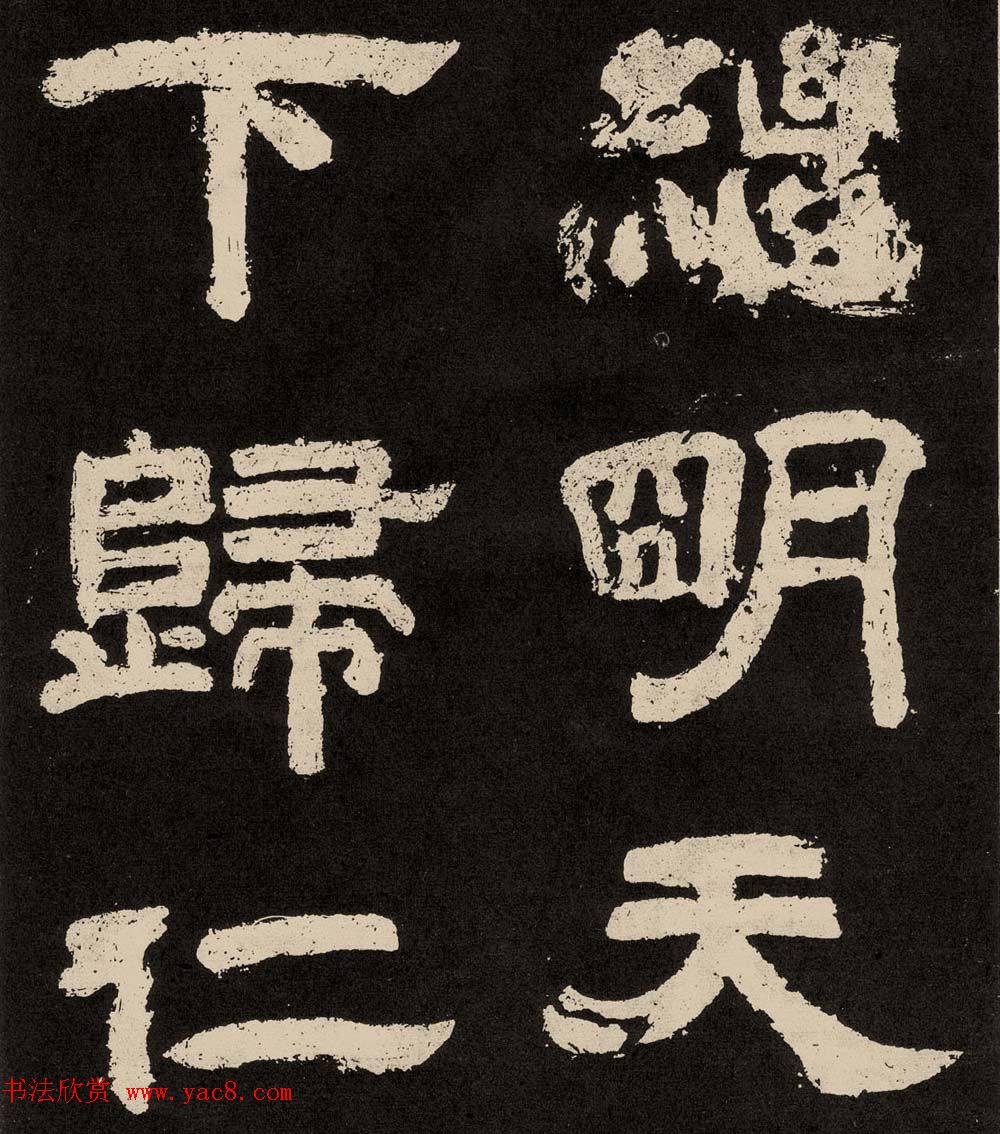 繼明天
下歸仁
书法欣赏 www.yac8.com